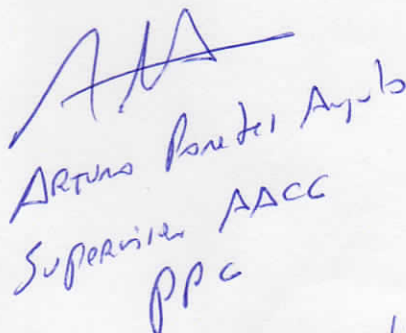 Arturo Paredes Angulo
Supervisor AACC
PPG